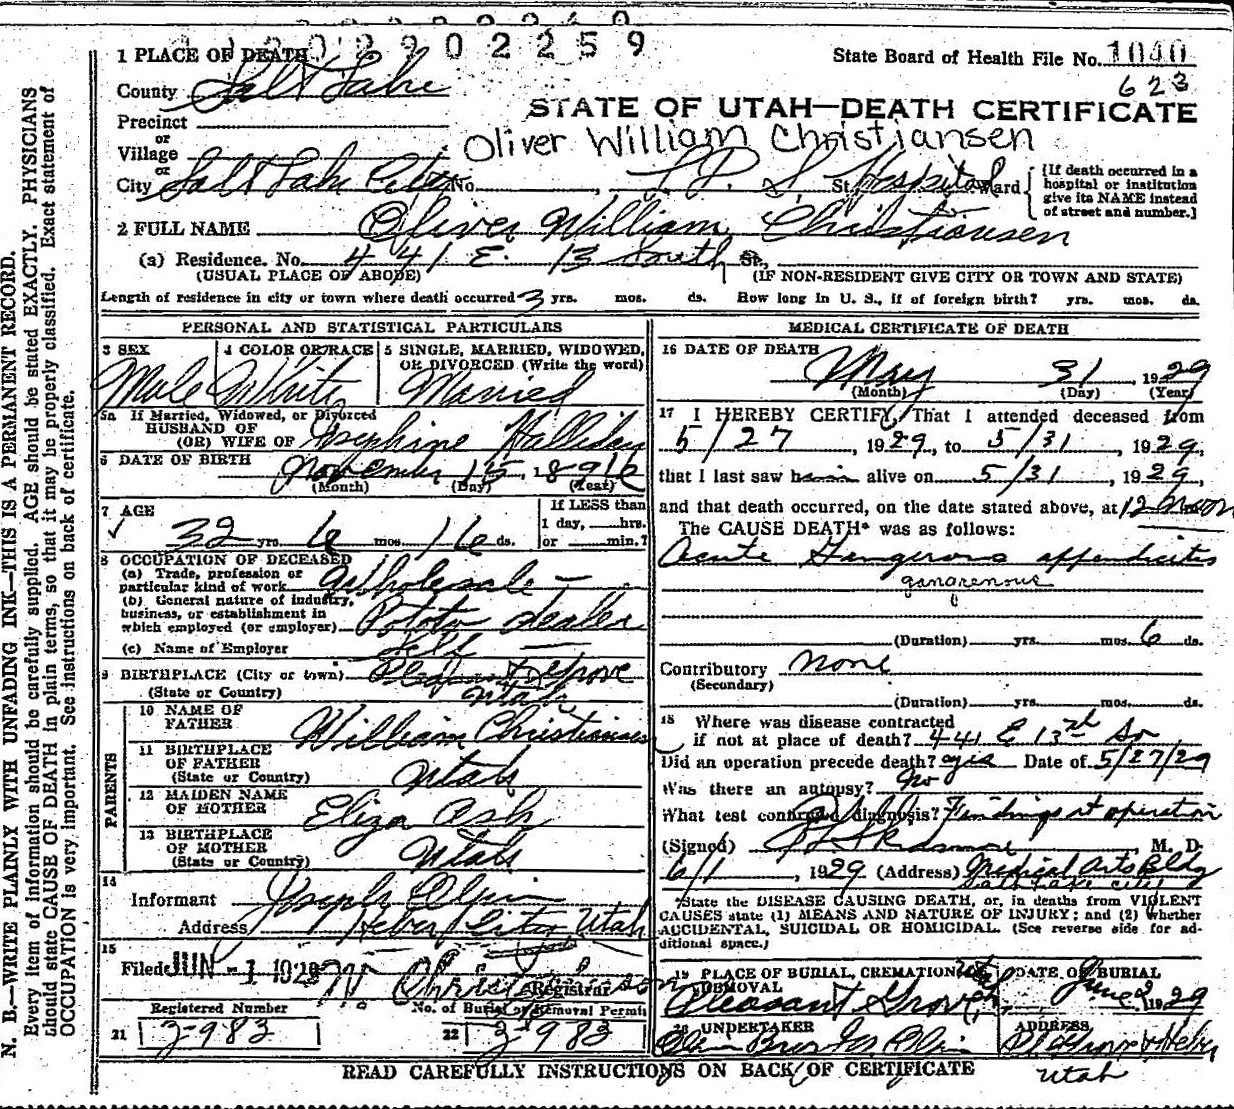 2902259
1 PLACE OF DEATH
State Board of Health File No. 1040
623
County Salt Lake
STATE OF UTAH—DEATH CERTIFICATE
Precinct
or
Oliver William Christiansen
Village
or
City Salt Lake City No. , L. D. S. St. Hospital Ward
{If death occurred in a
hospital or institution
give its NAME instead
of street and number.]
2 FULL NAME Oliver William Christiansen
(a) Residence. No. 441 E. 13 South St.
(USUAL PLACE OF ABODE) (IF NON-RESIDENT GIVE CITY OR TOWN AND STATE)
Length of residence in city or town where death occurred 3 yrs. mos. ds. How long in U. S., if of foreign birth? yrs. mos. ds.
PERSONAL AND STATISTICAL PARTICULARS
3 SEX
Male
4 COLOR OR RACE
White
5 SINGLE, MARRIED, WIDOWED,
OR DIVORCED (Write the word)
Married
5a If Married, Widowed, or Divorced
HUSBAND OF
(OR) WIFE OF Josephine Halliday
6 DATE OF BIRTH
November 15, 1896
(Month) (Day) (Year)
7 AGE
32 yrs. 6 mos. 16 ds.
If LESS than
1 day, hrs.
or min.?
8 OCCUPATION OF DECEASED
(a) Trade, profession or
particular kind of work Wholesale —
(b) General nature of industry,
business, or establishment in
which employed (or employer) Potato dealer
(c) Name of Employer Self —
9 BIRTHPLACE (City or town) Pleasant Grove
(State or Country) Utah
PARENTS
10 NAME OF
FATHER William Christiansen
11 BIRTHPLACE
OF FATHER
(State or Country) Utah
12 MAIDEN NAME
OF MOTHER Eliza Ash
13 BIRTHPLACE
OF MOTHER
(State or Country) Utah
14
Informant Joseph Olpin
Address Heber City Utah
15
Filed JUN -1 1929
Registrar
Registered Number
No. of Burial or Removal Permit
21 2-983
22 2-983
MEDICAL CERTIFICATE OF DEATH
16 DATE OF DEATH
May 31, 1929
(Month) (Day) (Year)
17 I HEREBY CERTIFY, That I attended deceased from
5/27, 1929, to 5/31, 1929,
that I last saw him alive on 5/31, 1929,
and that death occurred, on the date stated above, at 12 noon
The CAUSE DEATH* was as follows:
Acute Gangerous appendicites
gangrenous
(Duration) yrs. mos. 6 ds.
Contributory none
(Secondary)
(Duration) yrs. mos. ds.
18 Where was disease contracted
if not at place of death? 441 E 13rd So
Did an operation precede death? yes Date of 5/27/29
Was there an autopsy? No
What test confirmed diagnosis? Findings at operation
(Signed) M. D.
6/1, 1929 (Address) Medical Arts Bldg
Salt Lake City
*State the DISEASE CAUSING DEATH, or, in deaths from VIOLENT
CAUSES state (1) MEANS AND NATURE OF INJURY; and (2) whether
ACCIDENTAL, SUICIDAL OR HOMICIDAL. (See reverse side for ad-
ditional space.)
19 PLACE OF BURIAL, CREMATION
REMOVAL
Pleasant Grove, Utah
DATE OF BURIAL
June 2 1929
20 UNDERTAKER
Olpin Bros
ADDRESS
Pl Grove & Heber
Utah
READ CAREFULLY INSTRUCTIONS ON BACK OF CERTIFICATE
N. B.—WRITE PLAINLY WITH UNFADING INK—THIS IS A PERMANENT RECORD.
Every item of information should be carefully supplied. AGE should be stated EXACTLY. PHYSICIANS
should state CAUSE OF DEATH in plain terms, so that it may be properly classified. Exact statement of
OCCUPATION is very important. See instructions on back of certificate.